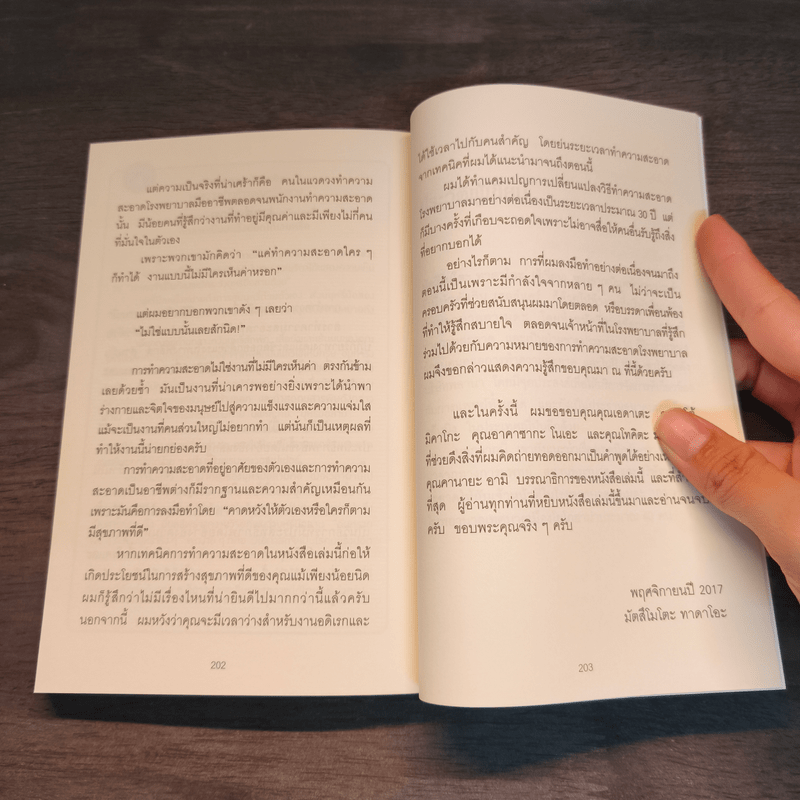 แต่ความเป็นจริงที่น่าเศร้าก็คือ คนในแวดวงทำความ
สะอาดโรงพยาบาลมืออาชีพตลอดจนพนักงานทำความสะอาด
นั้น มีน้อยคนที่รู้สึกว่างานที่ทำอยู่มีคุณค่าและมีเพียงไม่กี่คน
ที่มั่นใจในตัวเอง
เพราะพวกเขามักคิดว่า “แค่ทำความสะอาดใคร ๆ
ก็ทำได้ งานแบบนี้ไม่มีใครเห็นค่าหรอก”
แต่ผมอยากบอกพวกเขาดัง ๆ เลยว่า
“ไม่ใช่แบบนั้นเลยสักนิด!”
การทำความสะอาดไม่ใช่งานที่ไม่มีใครเห็นค่า ตรงกันข้าม
เลยด้วยซ้ำ มันเป็นงานที่น่าเคารพอย่างยิ่งเพราะได้นำพา
ร่างกายและจิตใจของมนุษย์ไปสู่ความแข็งแรงและความแจ่มใส
แม้จะเป็นงานที่คนส่วนใหญ่ไม่อยากทำ แต่นั่นก็เป็นเหตุผลที่
ทำให้งานนี้น่ายกย่องครับ
การทำความสะอาดที่อยู่อาศัยของตัวเองและการทำความ
สะอาดเป็นอาชีพต่างก็มีรากฐานและความสำคัญเหมือนกัน
เพราะมันคือการลงมือทำโดย “คาดหวังให้ตัวเองหรือใครก็ตาม
มีสุขภาพที่ดี”
หากเทคนิคการทำความสะอาดในหนังสือเล่มนี้ก่อให้
เกิดประโยชน์ในการสร้างสุขภาพที่ดีของคุณแม้เพียงน้อยนิด
ผมก็รู้สึกว่าไม่มีเรื่องไหนที่น่ายินดีไปมากกว่านี้แล้วครับ
นอกจากนี้ ผมหวังว่าคุณจะมีเวลาว่างสำหรับงานอดิเรกและ
202
ได้ใช้เวลาไปกับคนสำคัญ โดยย่นระยะเวลาทำความสะอาด
จากเทคนิคที่ผมได้แนะนำมาจนถึงตอนนี้
ผมได้ทำแคมเปญการเปลี่ยนแปลงวิธีทำความสะอาด
โรงพยาบาลมาอย่างต่อเนื่องเป็นระยะเวลาประมาณ 30 ปี แต่
ก็มีบางครั้งที่เกือบจะถอดใจเพราะไม่อาจสื่อให้คนอื่นรับรู้ถึงสิ่ง
ที่อยากบอกได้
อย่างไรก็ตาม การที่ผมลงมือทำอย่างต่อเนื่องจนมาถึง
ตอนนี้เป็นเพราะมีกำลังใจจากหลาย ๆ คน ไม่ว่าจะเป็น
ครอบครัวที่ช่วยสนับสนุนผมมาโดยตลอด หรือบรรดาเพื่อนพ้อง
ที่ทำให้รู้สึกสบายใจ ตลอดจนเจ้าหน้าที่ในโรงพยาบาลที่รู้สึก
ร่วมไปด้วยกับความหมายของการทำความสะอาดโรงพยาบาล
ผมจึงขอกล่าวแสดงความรู้สึกขอบคุณมา ณ ที่นี้ด้วยครับ
และในครั้งนี้ ผมขอขอบคุณคุณเอดาเตะ
มิคาโกะ คุณอาคาซากะ โนเอะ และคุณโทคิตะ
ที่ช่วยดึงสิ่งที่ผมคิดถ่ายทอดออกมาเป็นคำพูดได้อย่าง
คุณคานายะ อามิ บรรณาธิการของหนังสือเล่มนี้ และ
ที่สุด ผู้อ่านทุกท่านที่หยิบหนังสือเล่มนี้ขึ้นมาและอ่านจนจบ
ครับ ขอบพระคุณจริง ๆ ครับ
พฤศจิกายนปี 2017
มัตสึโมโตะ ทาดาโอะ
203